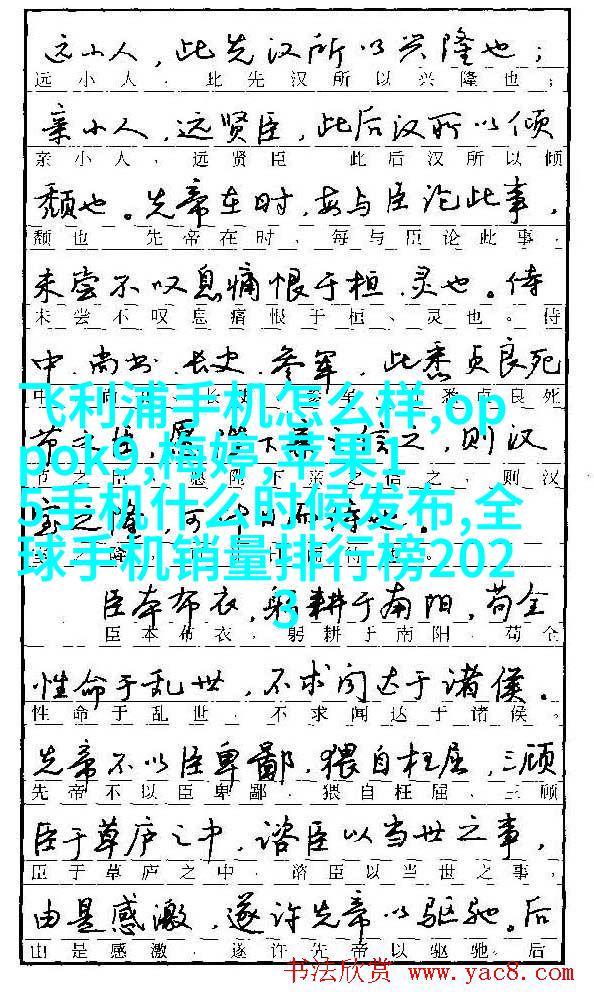 远小人，此先汉所以兴隆也；
远小人，此先汉所以兴隆也；
亲小人，远贤臣，此后汉所以倾
亲小人，远贤臣 此后汉所以倾
颓也。先帝在时，每与臣论此事，
颓也 先帝在时，每与臣论此事，
未尝不叹息痛恨于桓、灵也。侍
未尝不叹息痛恨于桓、灵也。侍
中、尚书、长史、参军，此悉贞良死
飞利浦手机怎么样,op
pok9,梅婷,苹果1
5手机什么时候发布,全
球手机销量排行榜202
3
臣本布衣，躬耕于南阳，苟全
臣本布衣，躬耕于南阳，苟全
性命于乱世，不求闻达于诸侯。
性命于乱世，不求闻达于诸侯。
先帝不以臣卑鄙，猥自枉屈，三顾
先帝不以臣卑鄙，猥自枉屈、三顾
臣于草庐之中，谘臣以当世之事，
臣于草庐之中，谘臣以当世之事，
由是感激，遂许先帝以驱驰。后
由是感激，遂许先帝以驱驰。后
书法欣赏 www.yac8.com